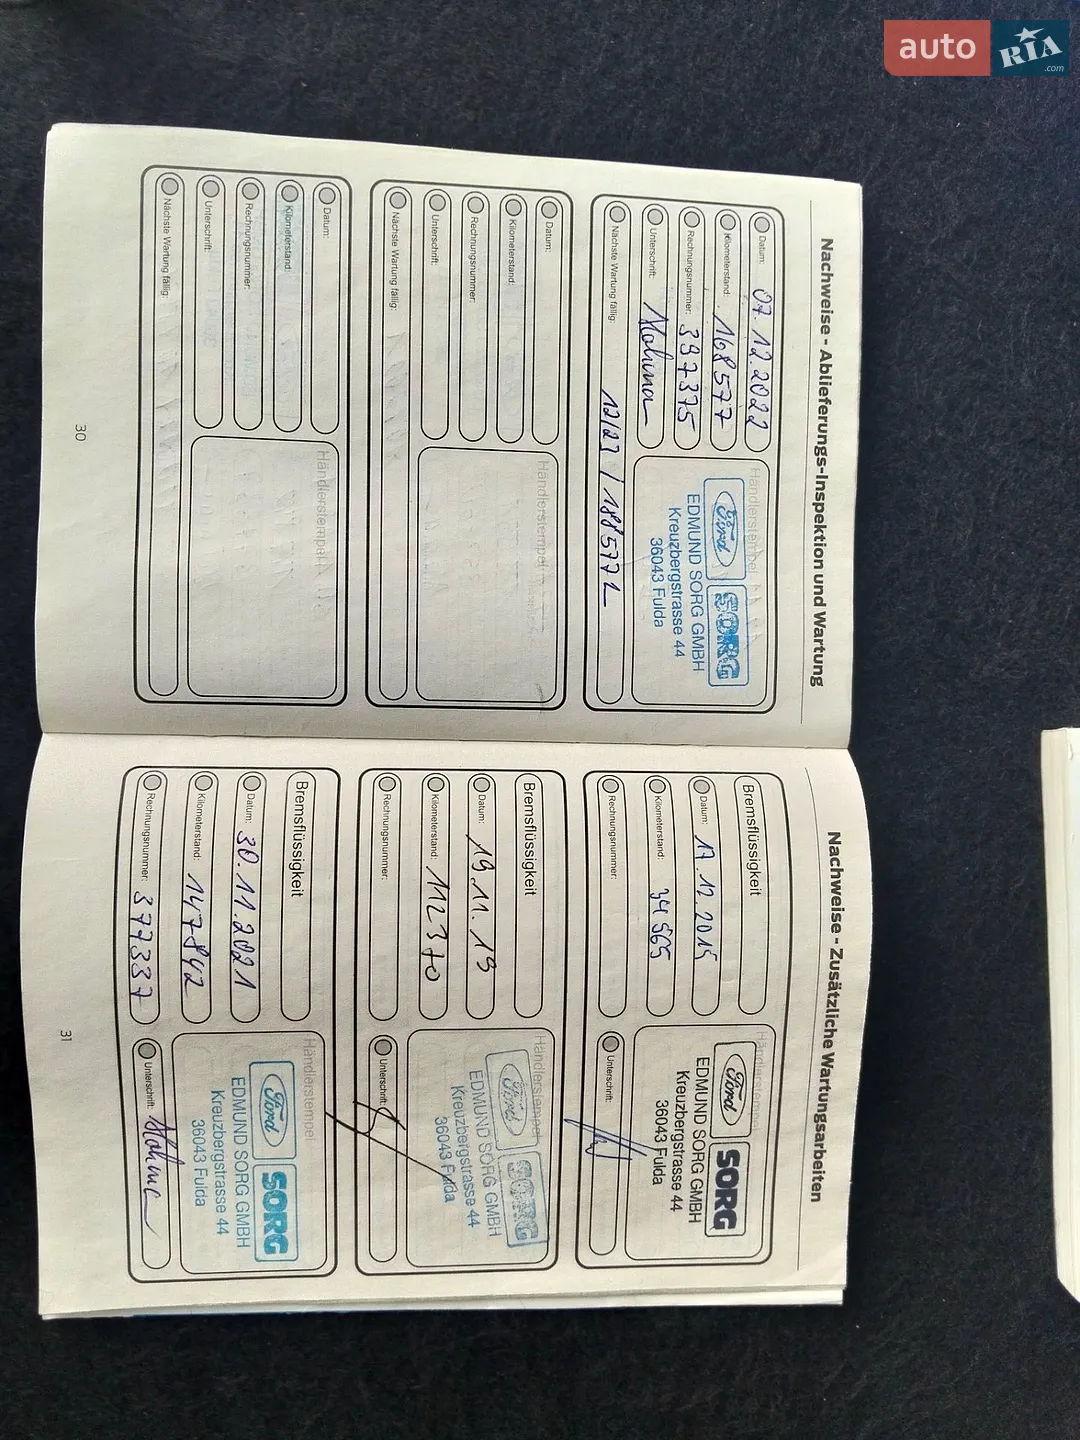 auto RIA.com
Nachweise - Ablieferungs-Inspektion und Wartung
Datum: 07.12.2022
Kilometerstand: 168577
Rechnungsnummer: 397375
Unterschrift:
Nächste Wartung fällig: 12/23 / 188577
Händlerstempel
Ford SORG
EDMUND SORG GMBH
Kreuzbergstrasse 44
36043 Fulda
Datum:
Kilometerstand:
Rechnungsnummer:
Unterschrift:
Nächste Wartung fällig:
Händlerstempel
Datum:
Kilometerstand:
Rechnungsnummer:
Unterschrift:
Nächste Wartung fällig:
Händlerstempel
30
Nachweise - Zusätzliche Wartungsarbeiten
Bremsflüssigkeit
Datum: 17.12.2015
Kilometerstand: 34565
Rechnungsnummer:
Händlerstempel
Ford SORG
EDMUND SORG GMBH
Kreuzbergstrasse 44
36043 Fulda
Unterschrift:
Bremsflüssigkeit
Datum: 19.11.19
Kilometerstand: 112370
Rechnungsnummer:
Händlerstempel
Ford SORG
EDMUND SORG GMBH
Kreuzbergstrasse 44
36043 Fulda
Unterschrift:
Bremsflüssigkeit
Datum: 30.11.2021
Kilometerstand: 147842
Rechnungsnummer: 377337
Händlerstempel
Ford SORG
EDMUND SORG GMBH
Kreuzbergstrasse 44
36043 Fulda
Unterschrift:
31